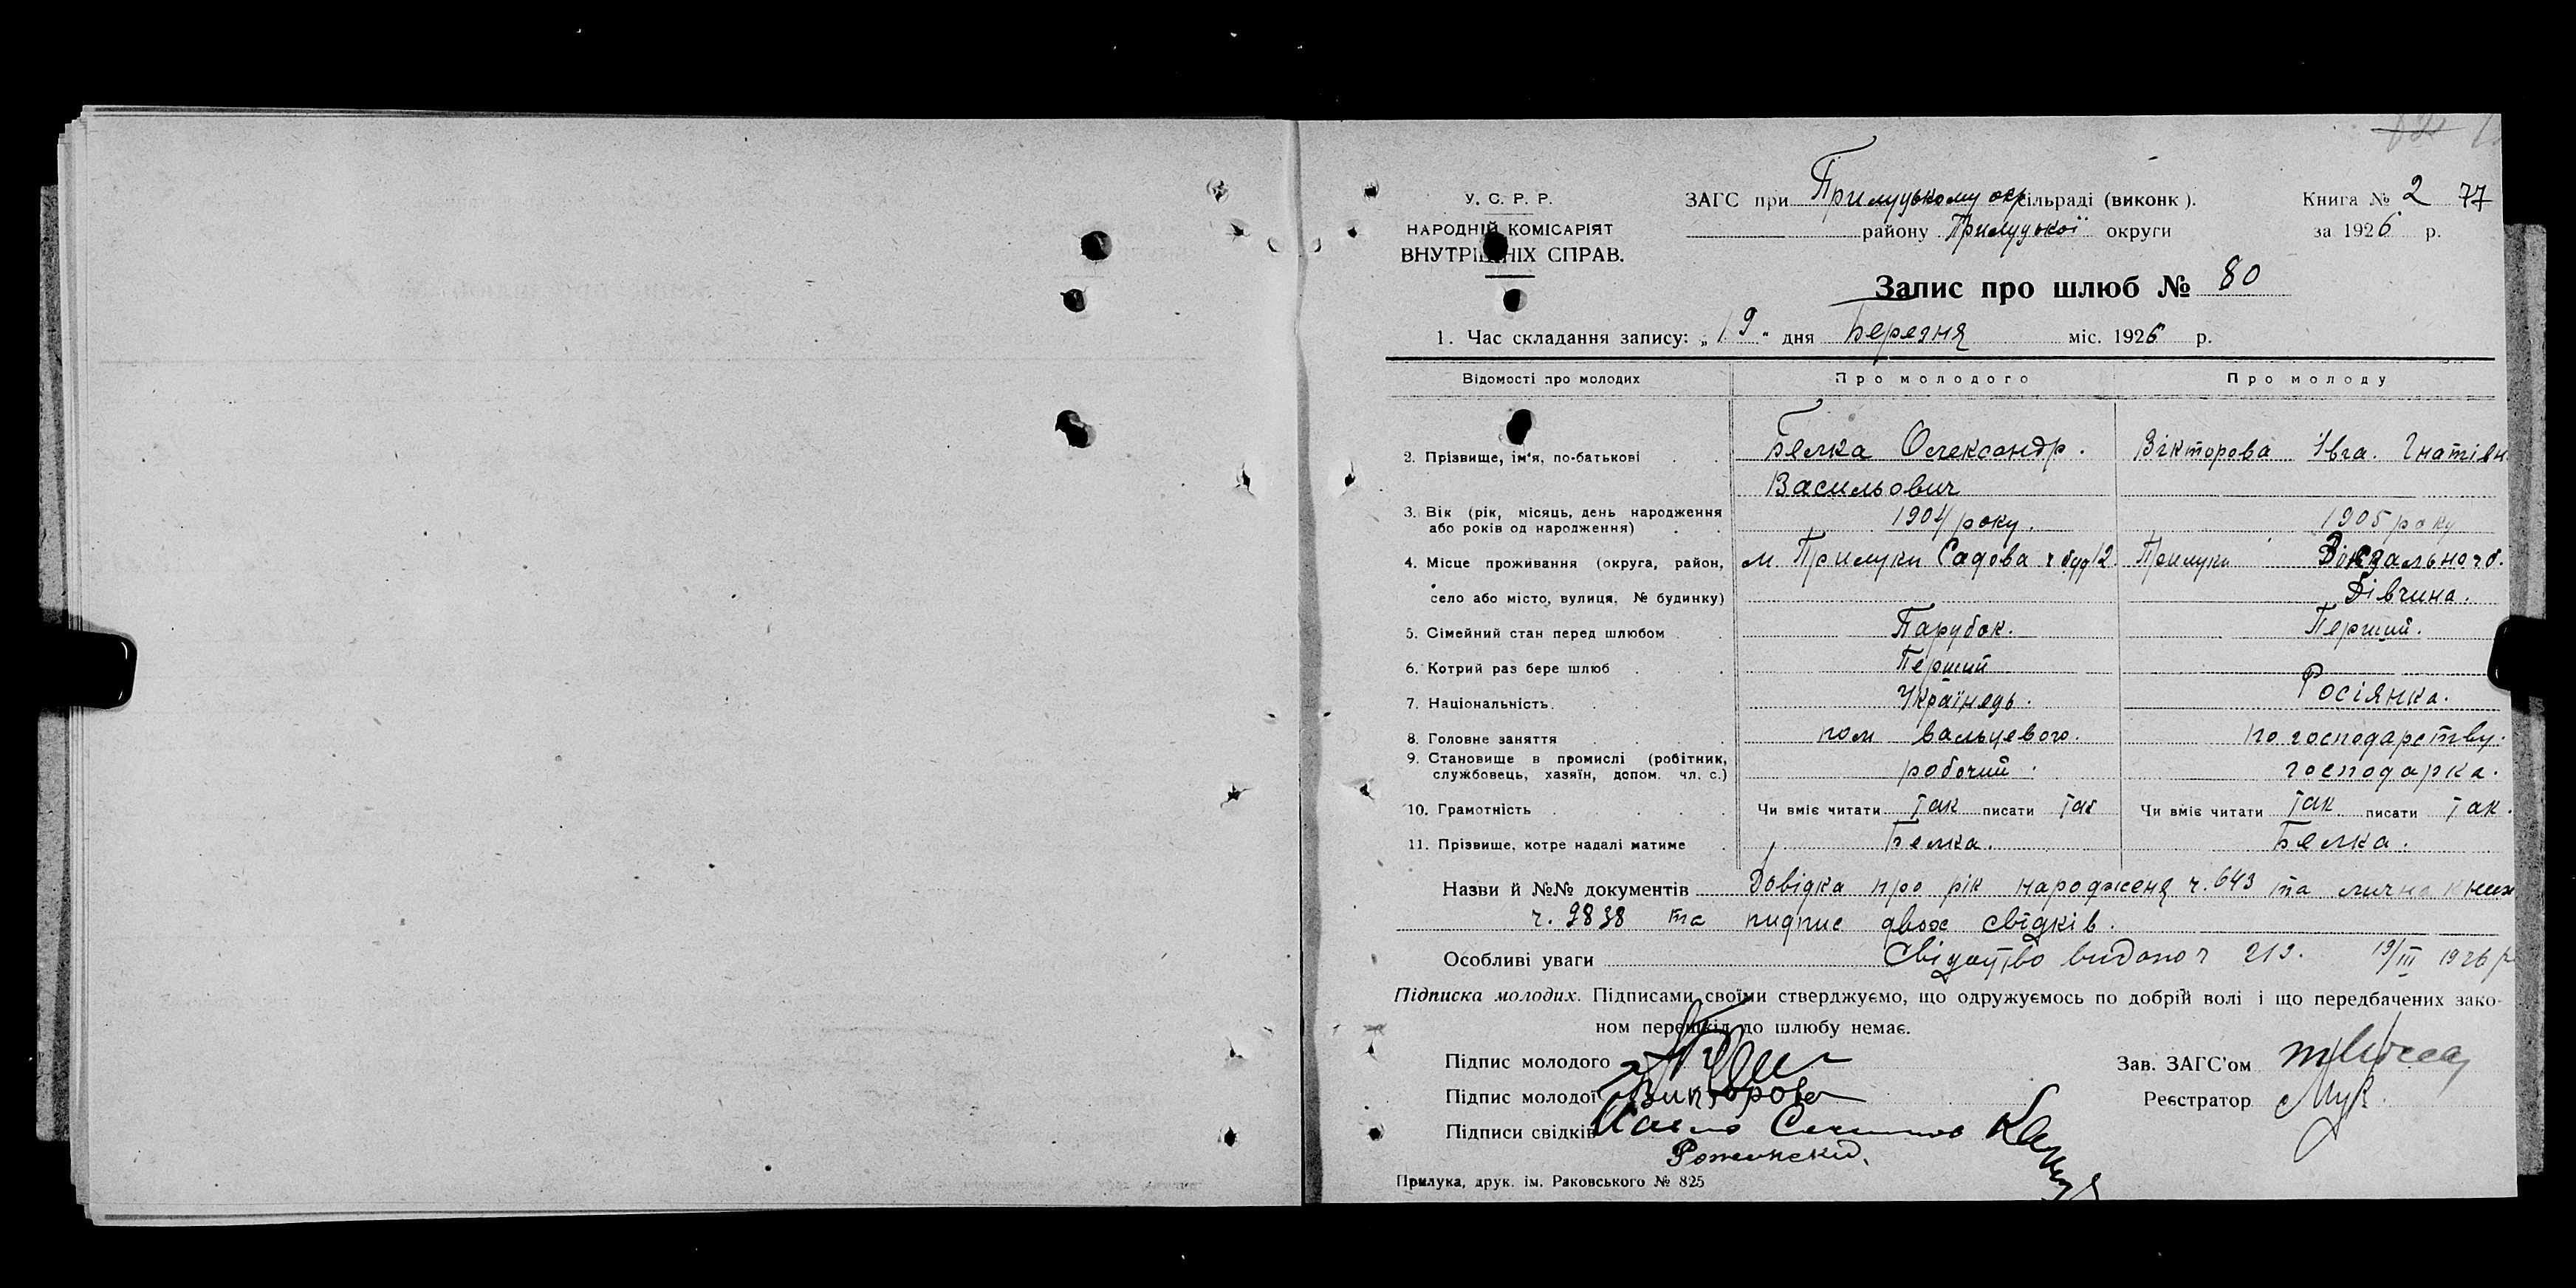 У. С. Р. Р.
НАРОДНІЙ КОМІСАРІЯТ
ВНУТРІШНІХ СПРАВ.
ЗАГС при Прилуцькому окр сільраді (виконк).
району Прилуцької округи
Книга № 2 77
за 1926 р.
Запис про шлюб № 80
1. Час складання запису: „19" дня Березня міс. 1926 р.
Відомості про молодих Про молодого Про молоду
2. Прізвище, ім'я, по-батькові Белка Олександр. Вікторова Івга. Гнатівн
Васильович
3. Вік (рік, місяць, день народження
або років од народження) 1904 року. 1905 року
4. Місце проживання (округа, район, м. Прилуки Садова ч буд 12. Прилуки
село або місто, вулиця, № будинку) Дівчина.
5. Сімейний стан перед шлюбом Парубок. Перший.
6. Котрий раз бере шлюб Перший
7. Національність. Українець. Росіянка.
8. Головне заняття пом вальцевого. по господарству.
9. Становище в промислі (робітник,
службовець, хазяїн, допом. чл. с.) робочий. господарка.
10. Грамотність Чи вміє читати так писати так Чи вміє читати так писати так.
11. Прізвище, котре надалі матиме Белка. Белка.
Назви й №№ документів Довідка про рік народженя ч. 643 та лична книж
ч. 9838 та пидпис двох свідків.
Особливі уваги Свідоцтво видано ч 213. 19/III 1926 р
Підписка молодих. Підписами своїми стверджуємо, що одружуємось по добрій волі і що передбачених зако-
ном перешкід до шлюбу немає.
Підпис молодого
Підпис молодої Викторова
Підписи свідків
Зав. ЗАГС'ом
Реєстратор
Прилука, друк. ім. Раковського № 825